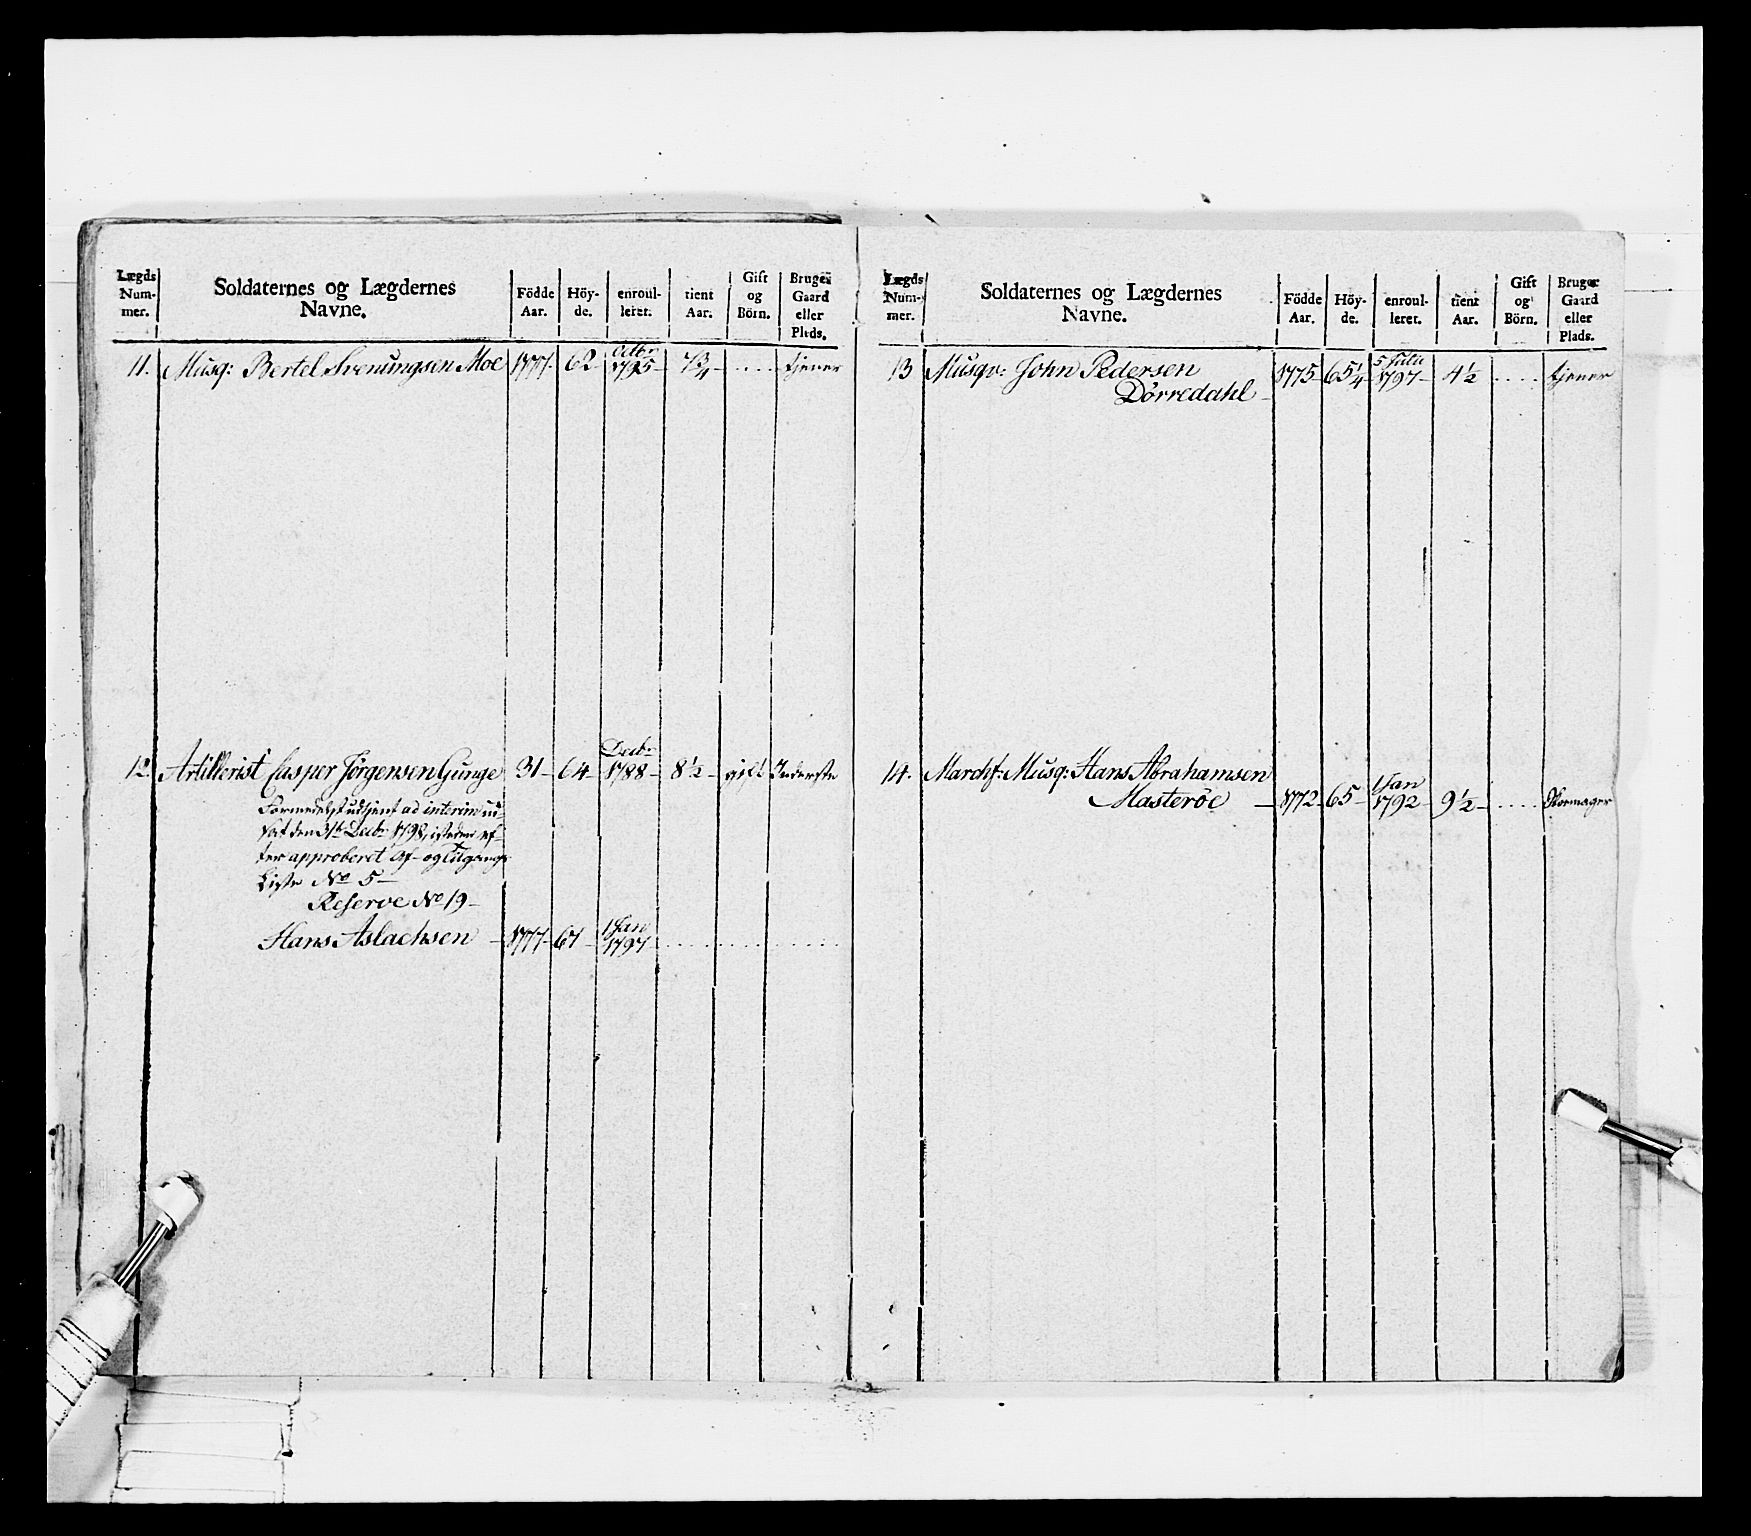 Lægds Num- mer.
Soldaternes og Lægdernes Navne.
Födde Aar.
Höy- de.
enroul- leret.
tient Aar.
Gift og Börn.
Bruger Gaard eller Plads.
11. Musq: Bertel Svenungsen Moe 1777. 62 Octbr 1795 7¾ .... tjener
12. Artillerist Casper Jörgensen Gunge 31 64 Decbr 1788 8½ gift Inderste
Formedelst udtjent ad interim ud-
sat den 31te Decbr 1798, isteden ef-
ter approberet Af- og Tilgangs
Liste No 5
Reserve No 19
Hans Aslachsen 1777 67 1 Jan 1797
Lægds Num- mer.
Soldaternes og Lægdernes Navne.
Födde Aar.
Höy- de.
enroul- leret.
tient Aar.
Gift og Börn.
Bruger Gaard eller Plads.
13 Musqu: John Pedersen
Dörredahl 1775 65¼ 5 Julii 1797 4½ .... tjener
14. Marchf: Musq: Hans Abrahamsen
Masteröe 1772 65 1 Jan 1792 9½ .... Skomager